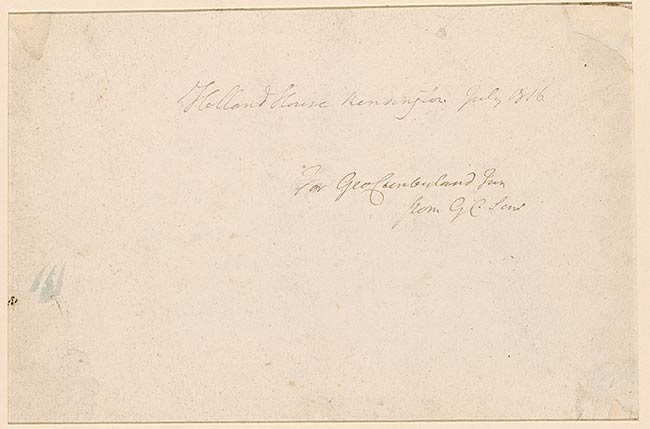 Holland House Kensington July 1816
For Geo Cumberland Jun
from G C Sen